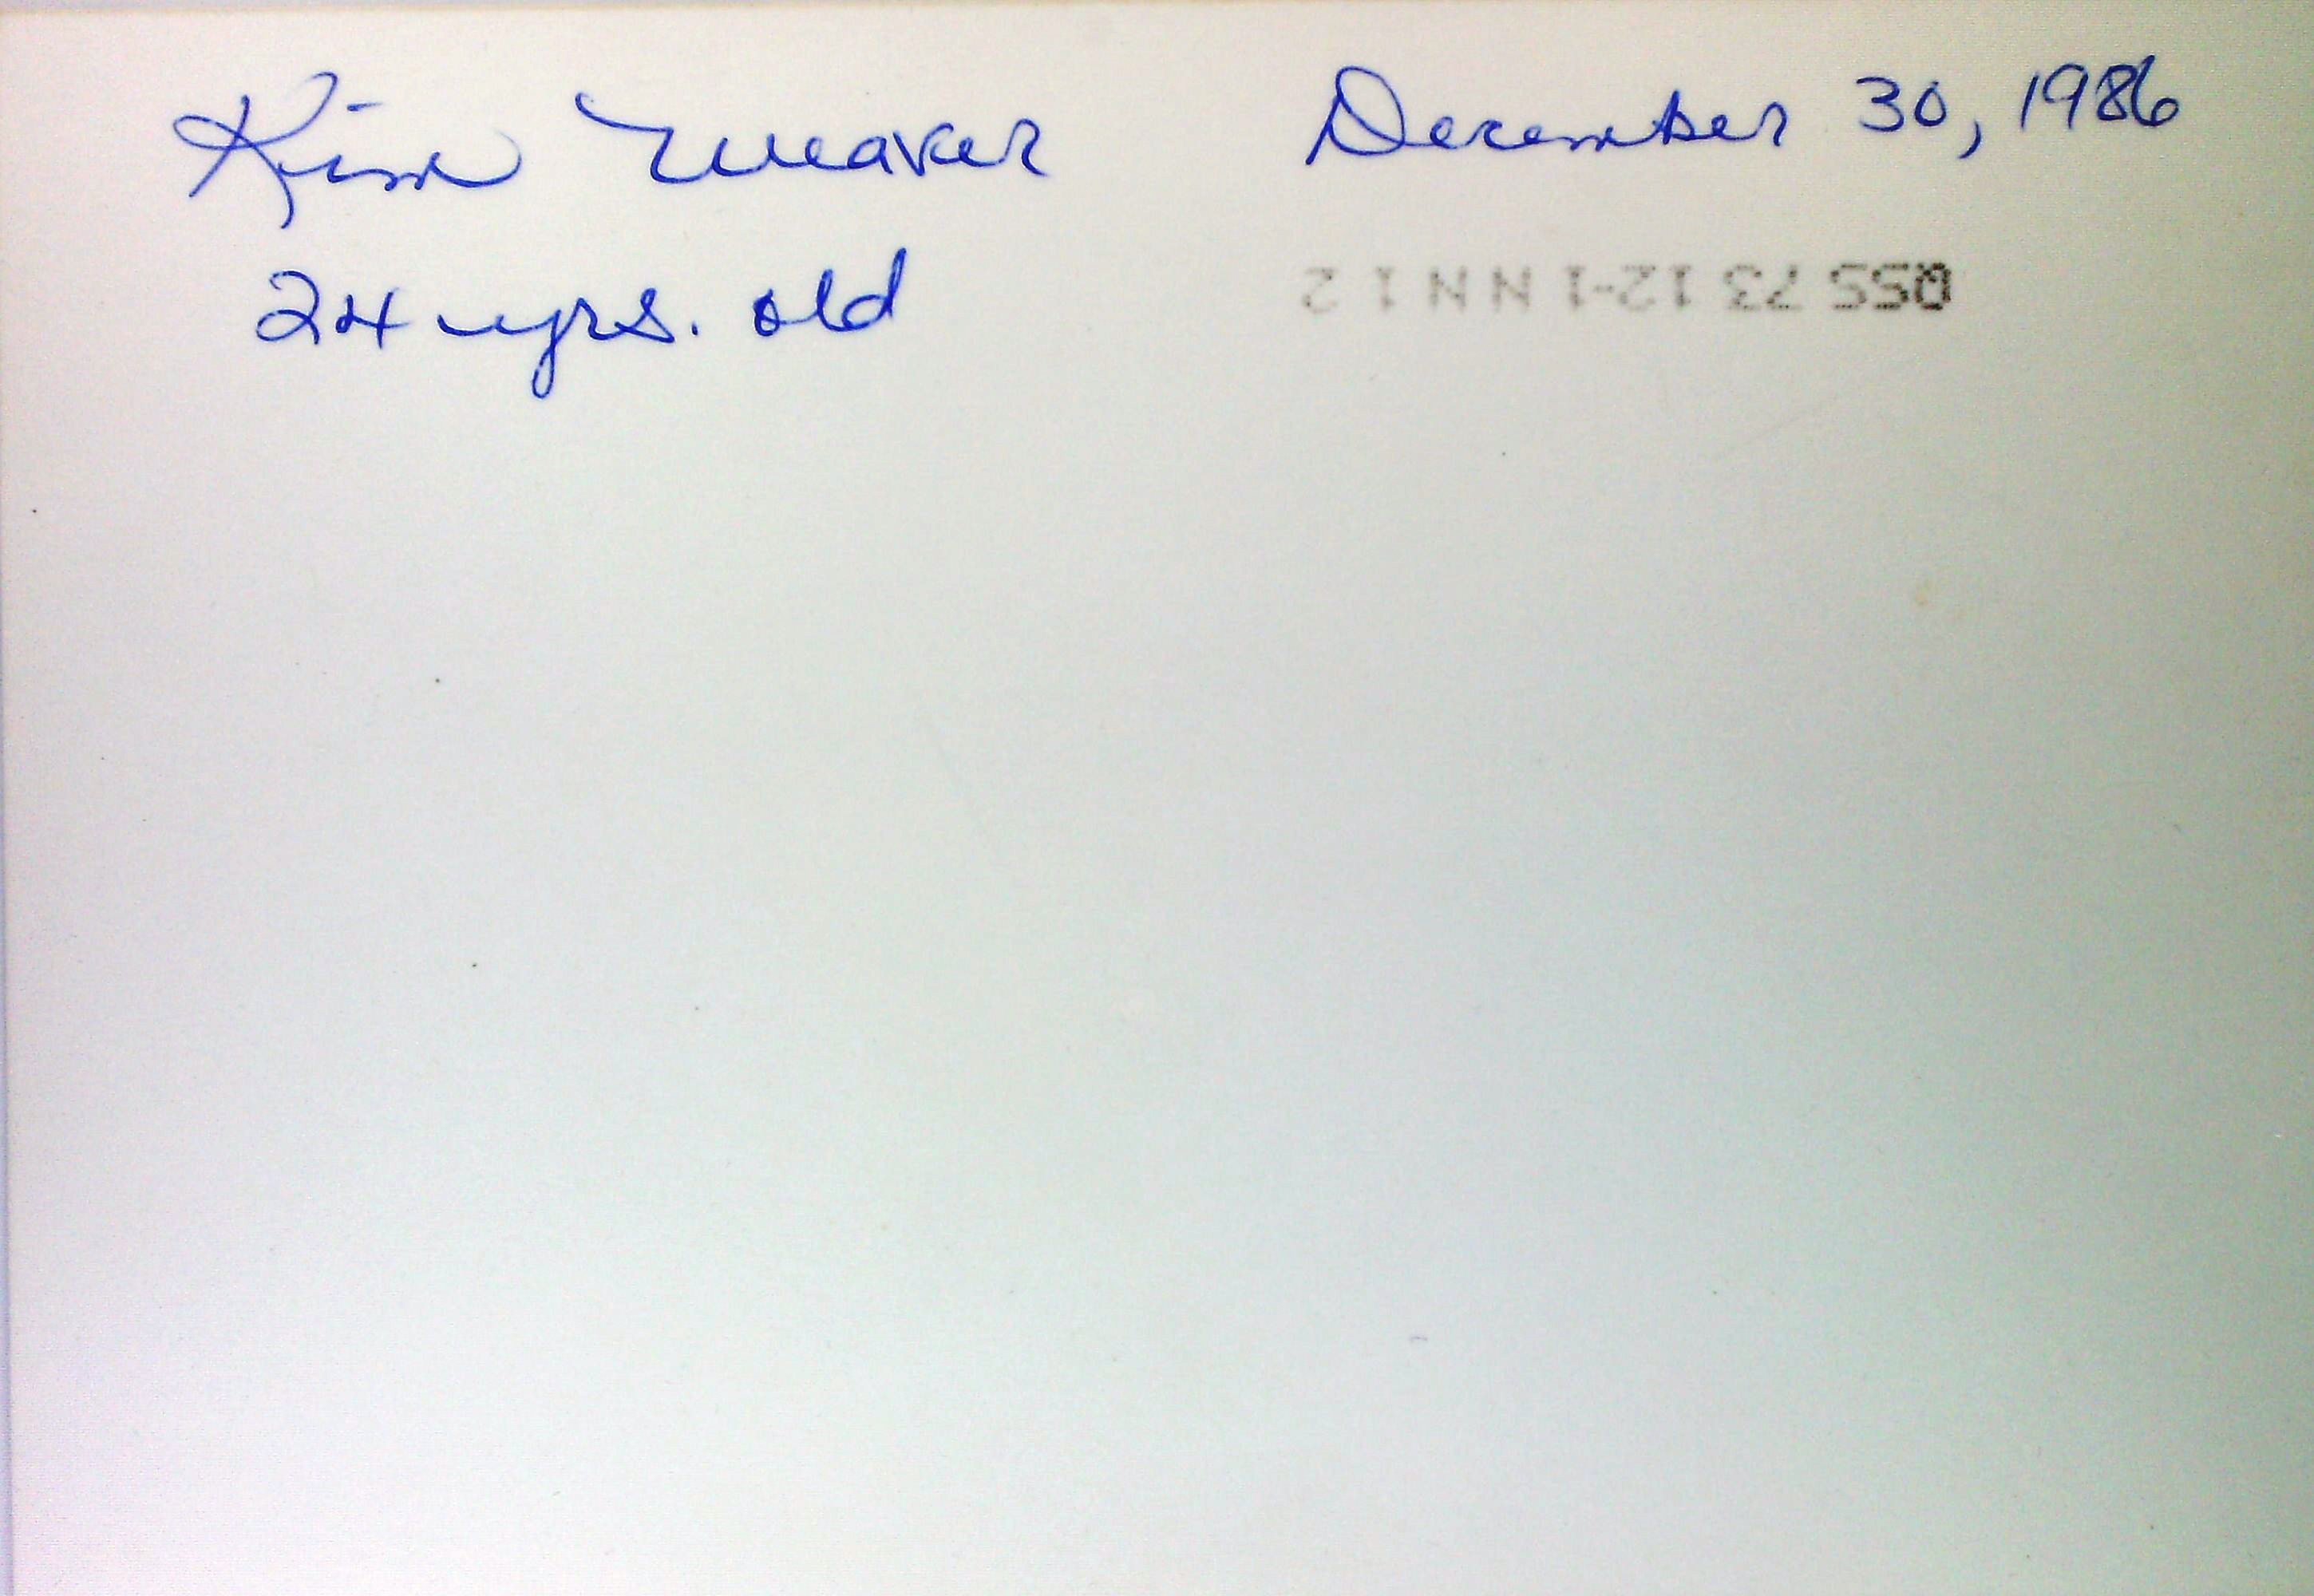 Kim Weaver December 30, 1986
24 yrs. old
QSS 73 12-1 N N 1 2